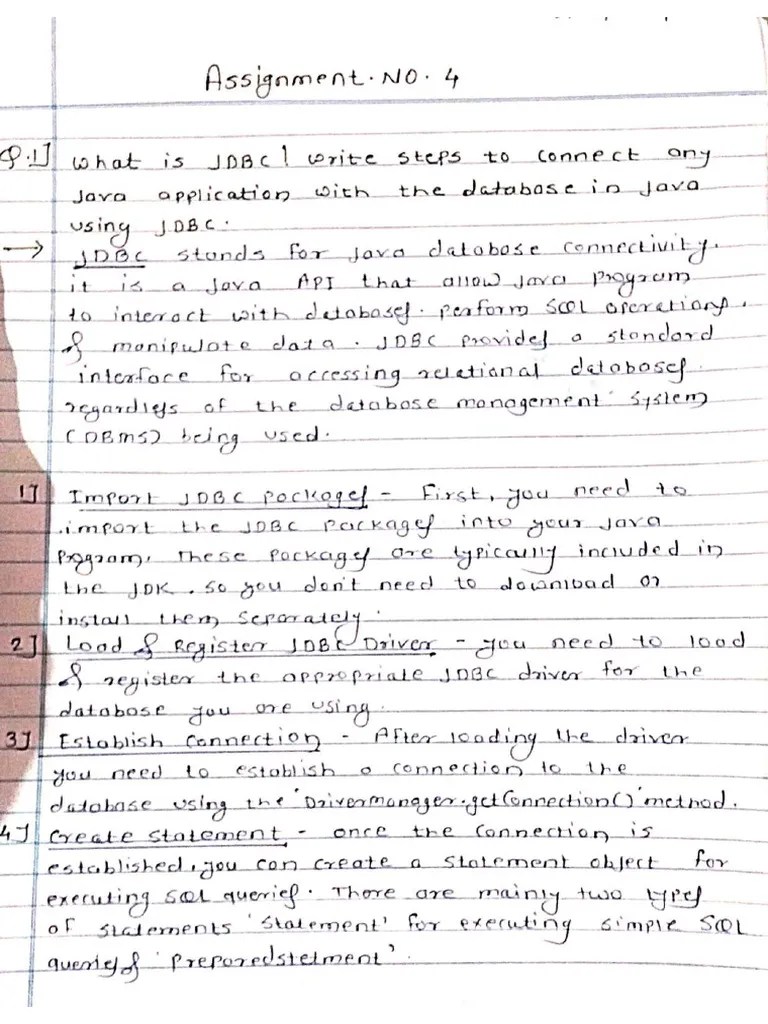 Assignment. NO. 4
Q.1] What is JDBC? Write steps to connect any
Java application with the database in Java
using JDBC.
→ JDBC stands for Java database connectivity.
it is a Java API that allow Java program
to interact with databases. perform SQL operations.
& manipulate data. JDBC provides a standard
interface for accessing relational databases.
regardless of the database management system
(DBMS) being used.
1] Import JDBC packages - First, you need to
import the JDBC packages into your Java
program. These packages are typically included in
the JDK. So you don't need to download or
install them separately.
2] Load & Register JDBC Driver - you need to load
& register the appropriate JDBC driver for the
database you are using.
3] Establish Connection - After loading the driver
you need to establish a connection to the
database using the 'Drivermanager.getConnection()' method.
4] Create Statement - once the connection is
established, you can create a statement object for
executing SQL queries. There are mainly two types
of statements 'Statement' for executing simple SQL
queries & 'Preparedstetment'.